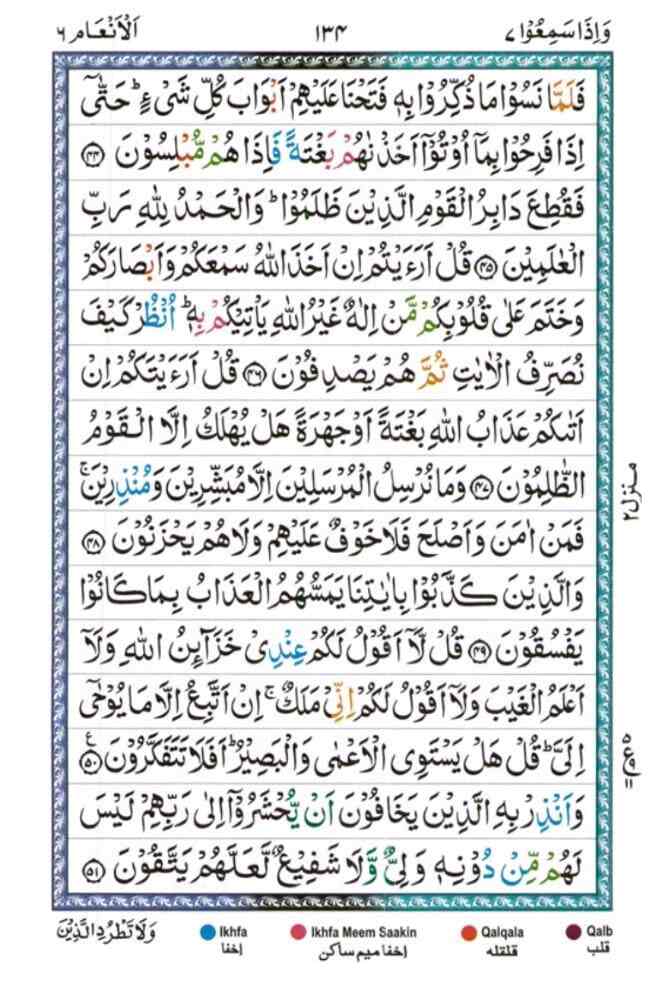 وَاِذَا سَمِعُوْا ٧
١٣٤
اَلْاَنْعَام ٦
فَلَمَّا نَسُوْا مَا ذُكِّرُوْا بِهٖ فَتَحْنَا عَلَيْهِمْ اَبْوَابَ كُلِّ شَىْءٍ ؕ حَتّٰٓى
اِذَا فَرِحُوْا بِمَاۤ اُوْتُوْۤا اَخَذْنٰهُمْ بَغْتَةً فَاِذَا هُمْ مُّبْلِسُوْنَ ﴿۴۴﴾
فَقُطِعَ دَابِرُ الْقَوْمِ الَّذِيْنَ ظَلَمُوْا ؕ وَالْحَمْدُ لِلّٰهِ رَبِّ
الْعٰلَمِيْنَ ﴿۴۵﴾ قُلْ اَرَءَيْتُمْ اِنْ اَخَذَ اللّٰهُ سَمْعَكُمْ وَاَبْصَارَكُمْ
وَخَتَمَ عَلٰى قُلُوْبِكُمْ مَّنْ اِلٰهٌ غَيْرُ اللّٰهِ يَاْتِيْكُمْ بِهٖ ؕ اُنْظُرْ كَيْفَ
نُصَرِّفُ الْاٰيٰتِ ثُمَّ هُمْ يَصْدِفُوْنَ ﴿۴۶﴾ قُلْ اَرَءَيْتَكُمْ اِنْ
اَتٰٮكُمْ عَذَابُ اللّٰهِ بَغْتَةً اَوْ جَهْرَةً هَلْ يُهْلَكُ اِلَّا الْقَوْمُ
الظّٰلِمُوْنَ ﴿۴۷﴾ وَمَا نُرْسِلُ الْمُرْسَلِيْنَ اِلَّا مُبَشِّرِيْنَ وَمُنْذِرِيْنَ ۚ
فَمَنْ اٰمَنَ وَاَصْلَحَ فَلَا خَوْفٌ عَلَيْهِمْ وَلَا هُمْ يَحْزَنُوْنَ ﴿۴۸﴾
وَالَّذِيْنَ كَذَّبُوْا بِاٰيٰتِنَا يَمَسُّهُمُ الْعَذَابُ بِمَا كَانُوْا
يَفْسُقُوْنَ ﴿۴۹﴾ قُلْ لَّاۤ اَقُوْلُ لَكُمْ عِنْدِىْ خَزَآٮِٕنُ اللّٰهِ وَلَاۤ
اَعْلَمُ الْغَيْبَ وَلَاۤ اَقُوْلُ لَكُمْ اِنِّىْ مَلَكٌ ۚ اِنْ اَتَّبِعُ اِلَّا مَا يُوْحٰٓى
اِلَىَّ ؕ قُلْ هَلْ يَسْتَوِى الْاَعْمٰى وَالْبَصِيْرُ ؕ اَفَلَا تَتَفَكَّرُوْنَ ﴿۵۰﴾ ع
وَاَنْذِرْ بِهِ الَّذِيْنَ يَخَافُوْنَ اَنْ يُّحْشَرُوْۤا اِلٰى رَبِّهِمْ لَيْسَ
لَهُمْ مِّنْ دُوْنِهٖ وَلِىٌّ وَّلَا شَفِيْعٌ لَّعَلَّهُمْ يَتَّقُوْنَ ﴿۵۱﴾
منزل ٢
وَلَا تَطْرُدِ الَّذِيْنَ
Ikhfa
إخفا
Ikhfa Meem Saakin
اخفا ميم ساكن
Qalqala
قلقله
Qalb
قلب